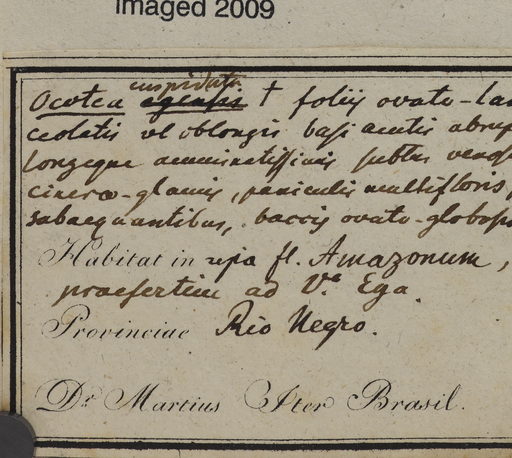 Imaged 2009
cuspidata
Ocotea egensis † foliis ovato-lan
ceolatis vl oblongis basi acutis abrup
longeque acuminatissimis subtus venos
cinereo-glaucis, paniculis multifloris,
subaequantibus, baccis ovato-globosis
Habitat in ripa fl. Amazonum,
praesertim ad Va Ega.
Provinciae Rio Negro.
Dr Martius Iter Brasil.